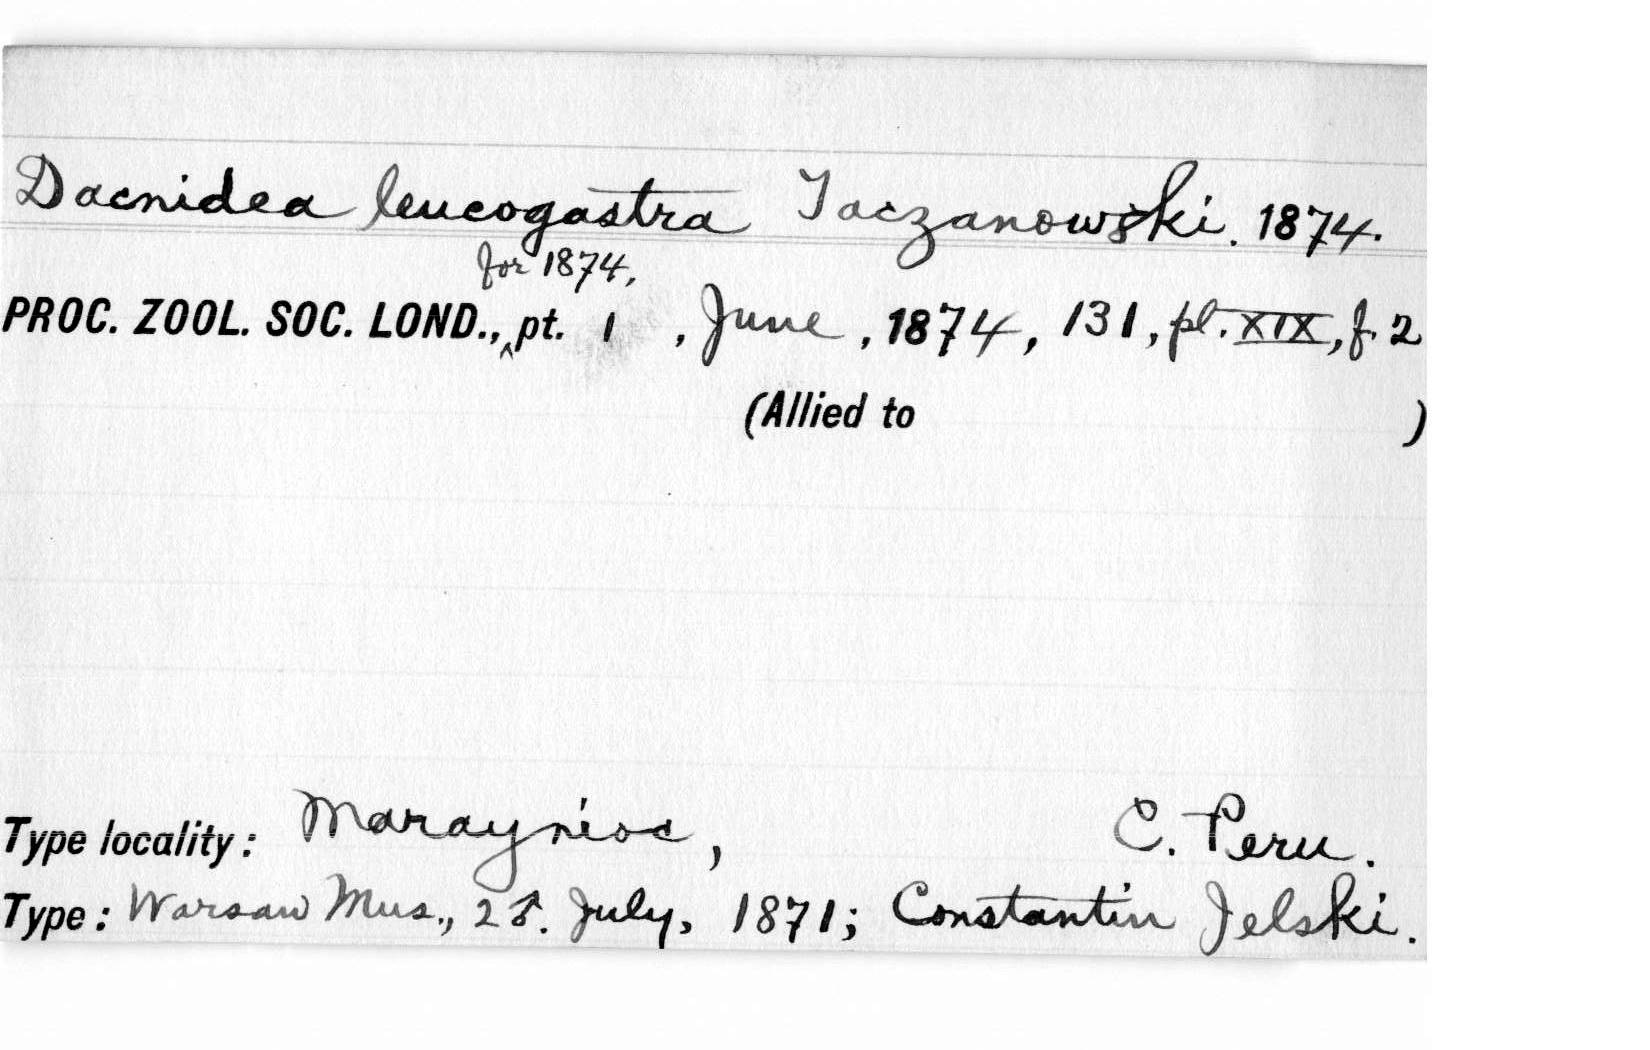 Dacnidea leucogastra Taczanowski. 1874.
for 1874,
PROC. ZOOL. SOC. LOND.,‸pt. 1 , June , 1874, 131, pl. XIX, f. 2
(Allied to )
Type locality: Maraynioc, C. Peru.
Type: Warsaw Mus., 2♂. July, 1871; Constantin Jelski.